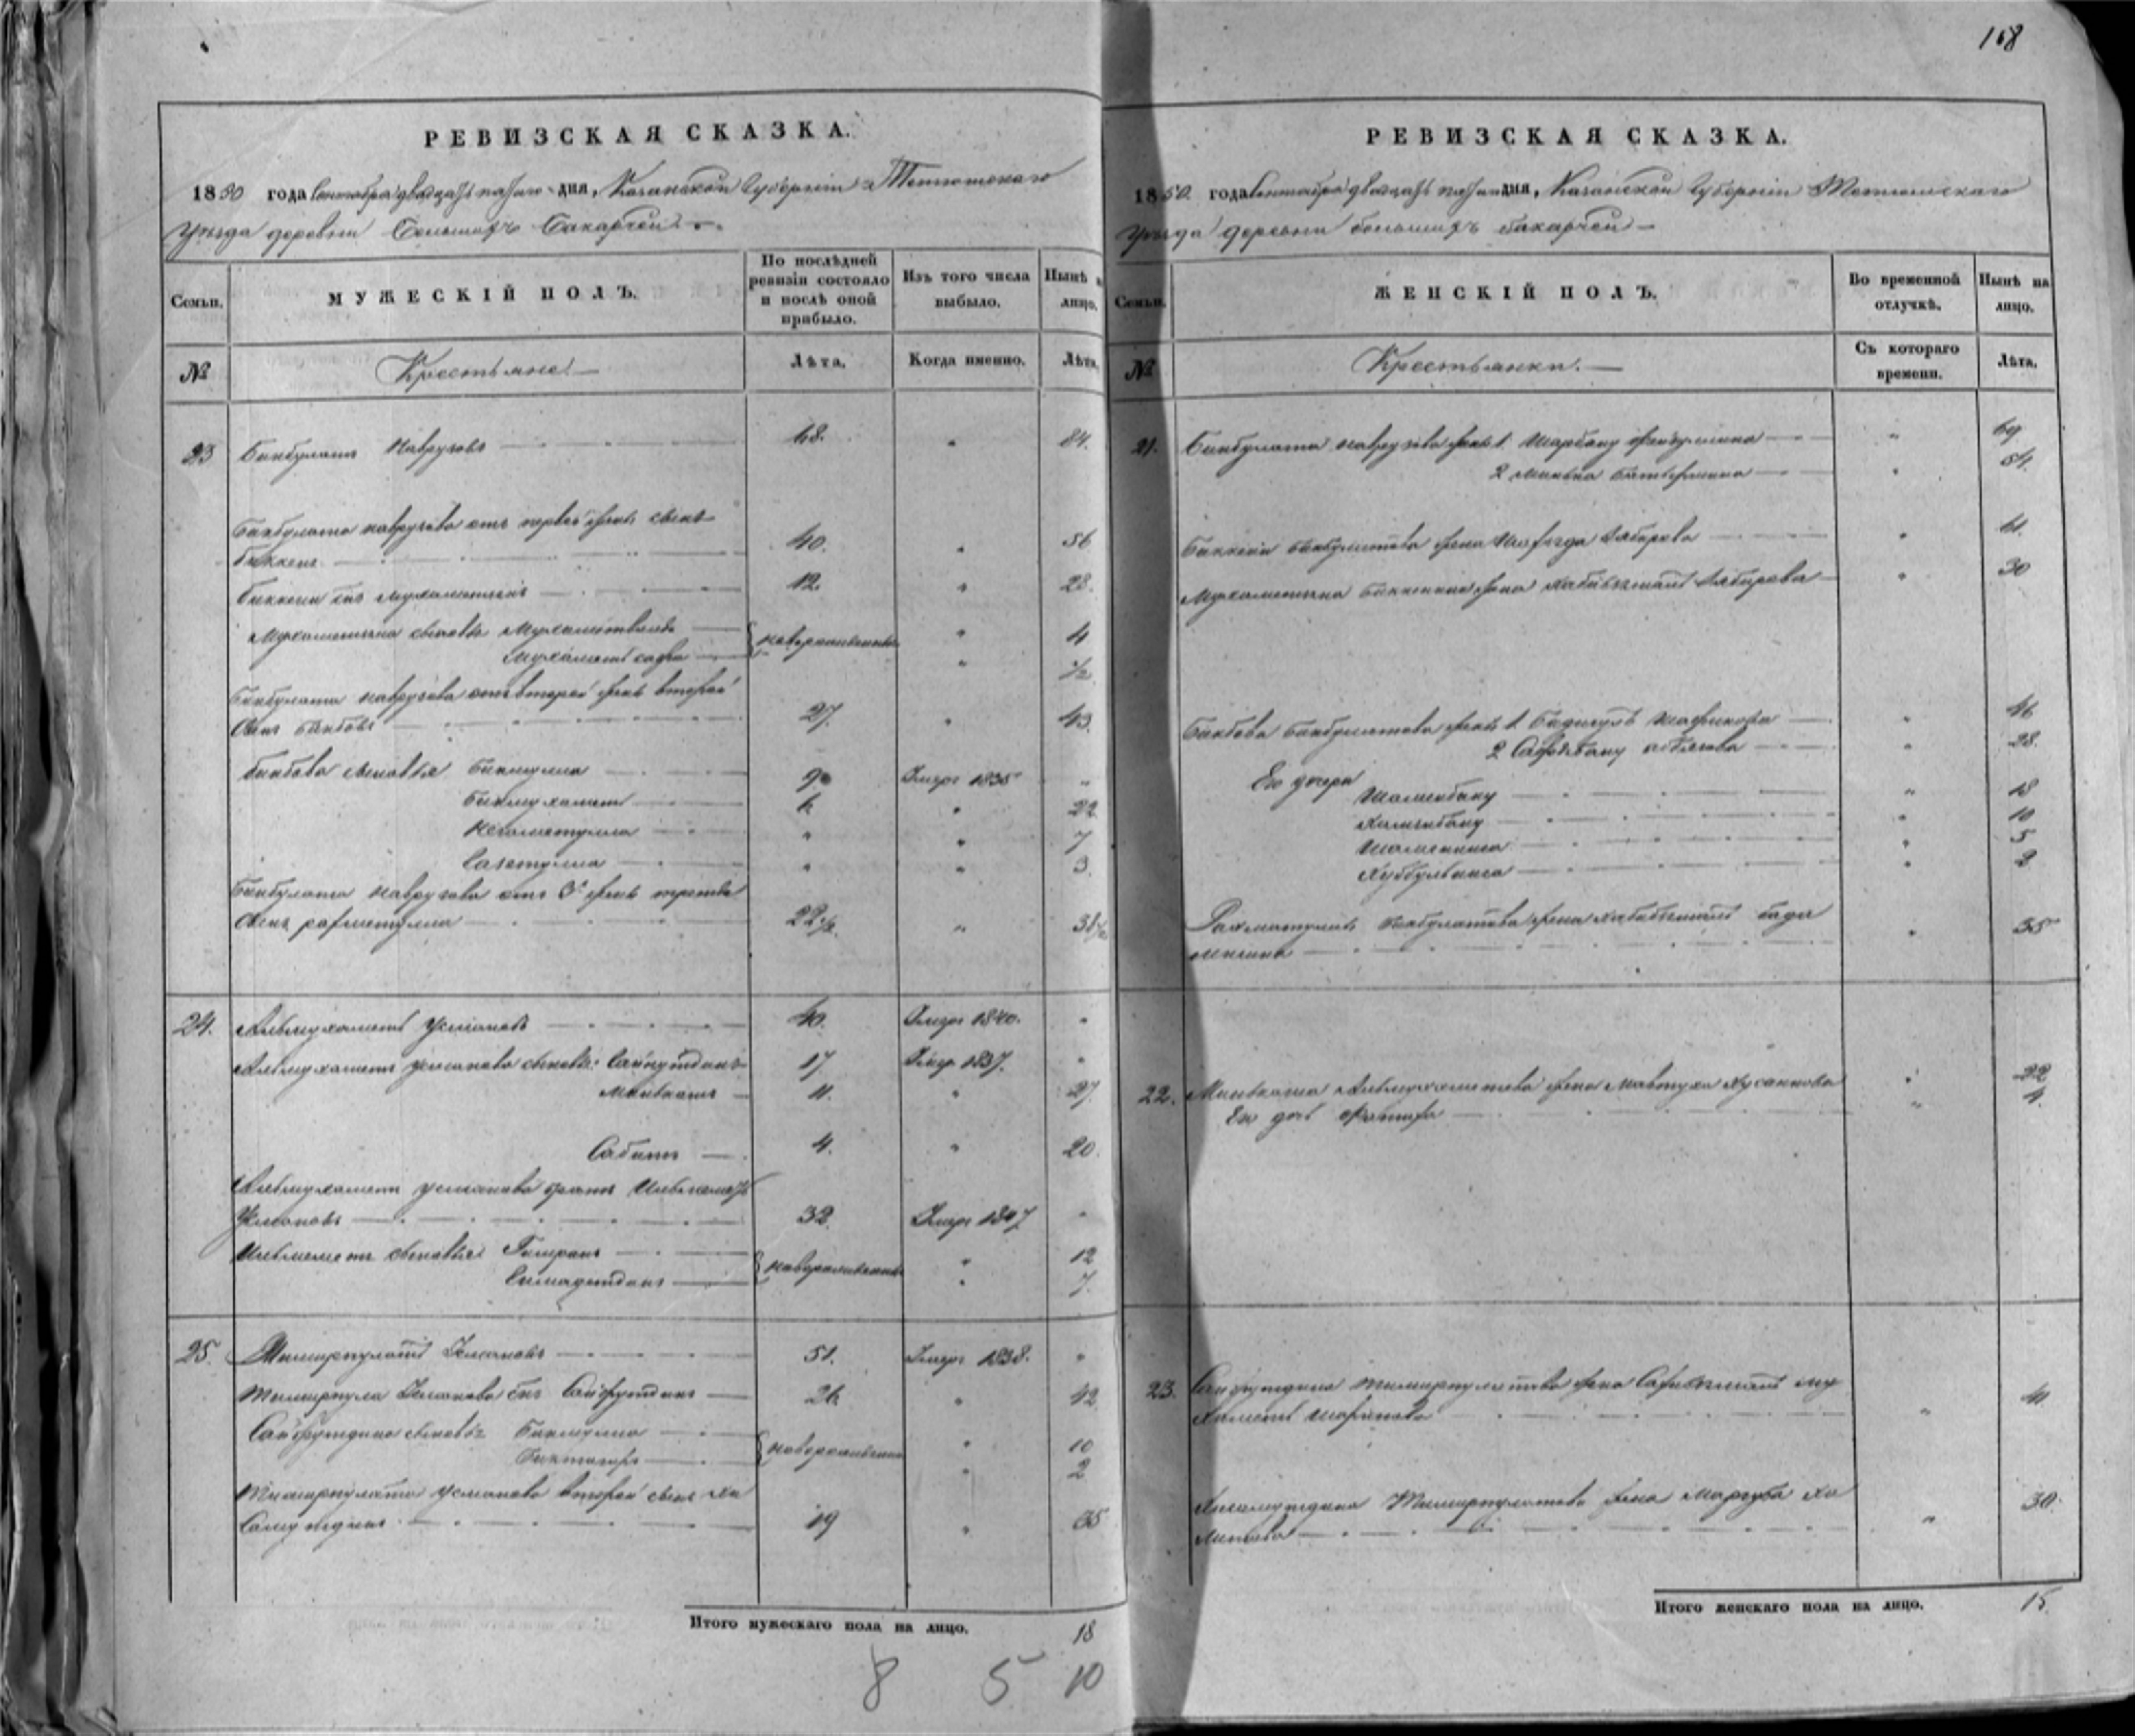 158
РЕВИЗСКАЯ СКАЗКА.
1850 года Сентября двадцать пятаго дня, Казанской Губерніи Тетюшскаго
Уезда деревни Большихъ Бакарчей
Семьи.
МУЖЕСКІЙ ПОЛЪ.
По послѣдней ревизіи состояло и послѣ оной прибыло.
Изъ того числа выбыло.
Нынѣ на лицо.
№
Крестьяне
Лѣта.
Когда именно.
Лѣта.
23 Бикбулатъ Наврузовъ 68. " 84.
Бикбулата Наврузова отъ первой жены сынъ
Биккени 40. " 56
Биккени сынъ Мухаметзянъ 12. " 28.
Мухаметзяна сыновья Мухаметвали новорожденные " 4
Мухаметсафа " 1/2
Бикбулата Наврузова отъ второй жены второй
сынъ Бикбовъ 27. " 43.
Бикбова сыновья Бикмулла 9 Умеръ 1835 "
Бикмухамет 6 " 22
Негаметулла " " 7
Сагетулла " " 3.
Бикбулата Наврузова отъ 3й жены третій
сынъ рахметулла 22 1/2. " 38 1/2
24. Альмухаметь Усмановъ 40. Умеръ 1840. "
Альмухаметя Усманова сыновья: Сайпутдинъ 17 Умер 1837. "
Минткашъ 11. " 27.
Сабитъ 4. " 20.
Альмухаметя Усманова братъ Ишьмеметь
Усмановъ 32. Умеръ 1847 "
Ишьмемета сыновья Гимранъ новорожденные " 12
" 7.
25. Тимирпулатъ Усмановъ 51. Умеръ 1838. "
Тимирпула Усманова сынъ Сайфутдинъ 26. " 42
Сайфутдина сыновья Бикмулла новорожденные " 10
Биктагиръ " 2
Тимирпулата Усманова второй сынъ Хи
самутдинъ 19 " 35
Итого мужескаго пола на лицо. 18
8 5 10
РЕВИЗСКАЯ СКАЗКА.
1850. года Сентября двадцать пятаго дня, Казанской Губерніи Тетюшскаго
Уезда деревни Большихъ Бакарчей
Семьи.
ЖЕНСКІЙ ПОЛЪ.
Во временной отлучкѣ.
Нынѣ на лицо.
№
Крестьянки.
Съ котораго времени.
Лѣта.
21. Бикбулата Наврузова жены 1 Шарбану " 69
2 " 54.
Биккени Бикбулатова жена Шафида Забирова " 61.
Мухаметзяна Биккенина жена Хабибзямал Забирова " 30
Бикбова Бикбулатова жены 1 Бадигулъ Шафикова " 46
2 Сафабану " 28.
Ея дочери Шамсибану " 18
Камилбану " 10
" 5
" 2
Рахматуллы Бикбулатова жена Хабибзямал Бадя
" 35
22. Минткаша Альмухаметева жена Мавтуха Хусаинова " 22
Ея дочь Фатиха " 4.
23. Сайфутдина Тимирпулатова жена Сафизямал Му
хаметь Шарипова " 41
Хисамутдина Тимирпулатова жена Маргуба Ха
литова " 30.
Итого женскаго пола на лицо. 15.